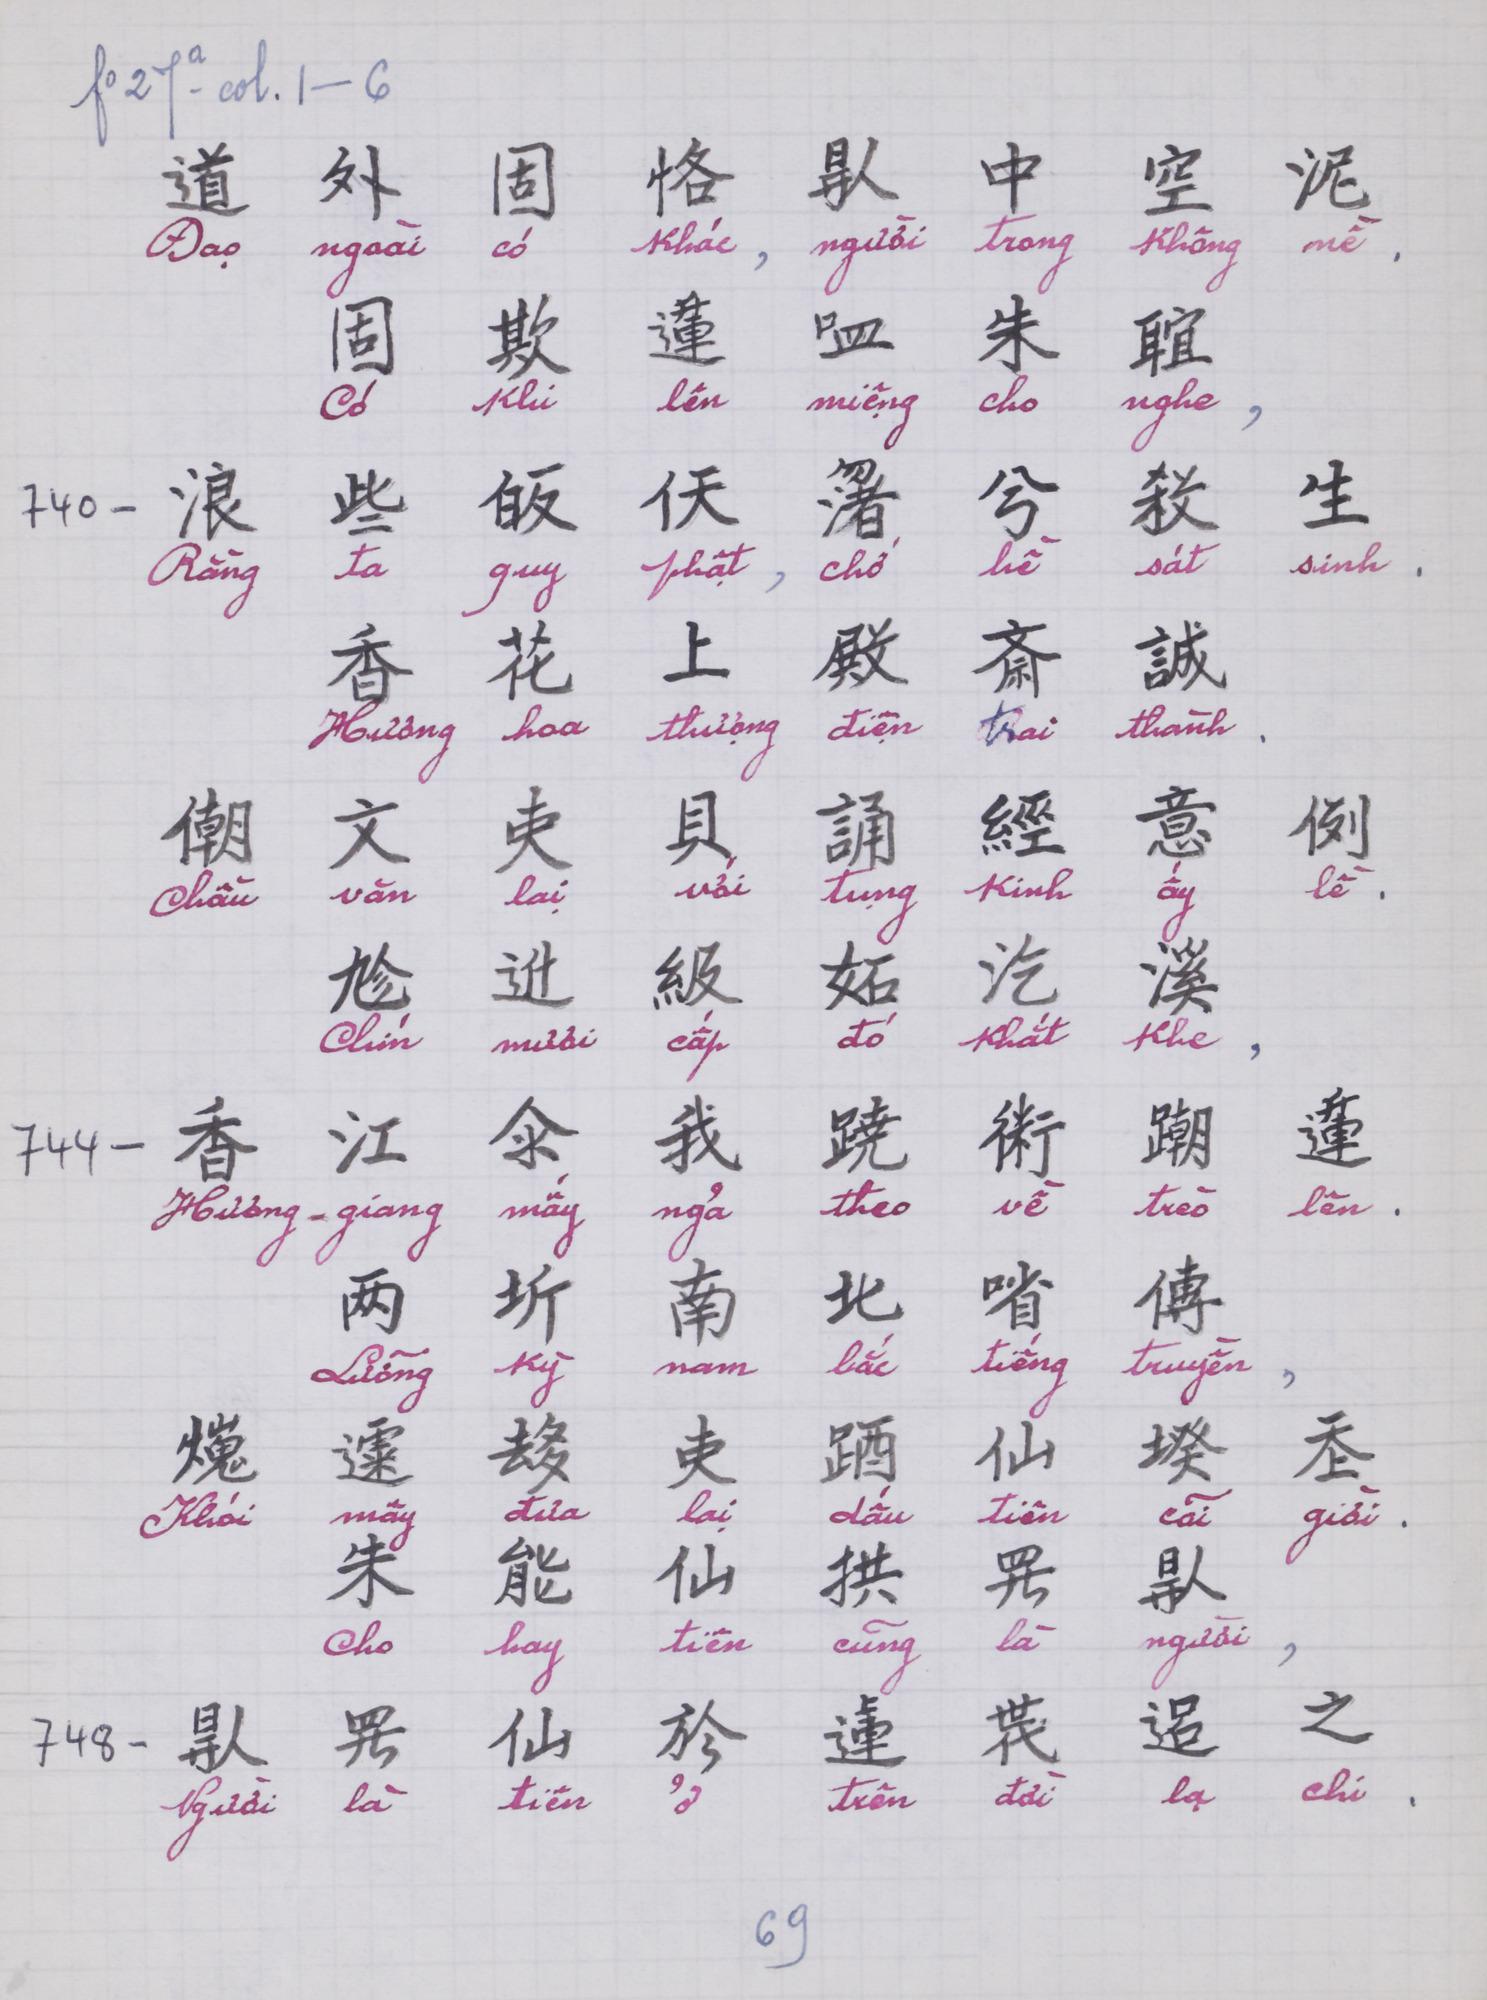 fº 27ª - col. 1 — 6
道 外 固 恪 𠊚 中 空 泥
Đạo ngoài có khác, người trong không nề.
固 欺 𨕭 𠰘 朱 𦖑
Có khi lên miệng cho nghe,
740 - 浪 些 皈 㐌 渚 兮 殺 生
Rằng ta quy phật, chớ hề sát sinh.
香 花 上 殿 斎 誠
Hương hoa thượng điện trai thành.
𠎨 文 吏 貝 誦 經 意 例
Chầu văn lại với tụng kinh ấy lề.
𠃩 𨑮 級 妬 汔 溪
Chín mươi cấp đó khắt khe,
744 - 香 江 氽 我 蹺 術 𨅹 𨖲
Hương - giang mấy ngả theo về trèo lên.
两 圻 南 北 㗂 傳
Lưỡng kỳ nam bắc tiếng truyền,
𤌋 𩄲 𨔾 吏 𨁪 仙 𡎝 𡗶
Khói mây đưa lại dấu tiên cõi giời.
朱 能 仙 拱 𱺵 𠊚
Cho hay tiên cũng là người,
748 - 𠊚 𱺵 仙 於 𨕭 𠁀 𨔍 之
Người là tiên ở trên đời lạ chi.
69